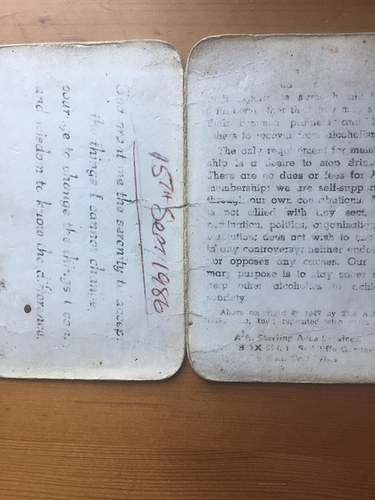 God grant me the serenity to accept
the things I cannot change
courage to change the things I can
and wisdom to know the difference.
15TH Sept 1986
strength and
that they may
their common problem and
thers to recover from alcoholism
The only requirement for mem
ship is a desire to stop drin
There are no dues or fees for A
membership; we are self-support
through our own contributions.
is not allied with any sect,
nomination, politics, organization
institution; does not wish to eng
in any controversy; neither endor
nor opposes any causes. Our
mary purpose is to stay sober a
help other alcoholics to achie
sobriety.
Above copyright © 1947 by The A.A.
Inc.; reprinted with
A.A. Sterling Area Services
BOX